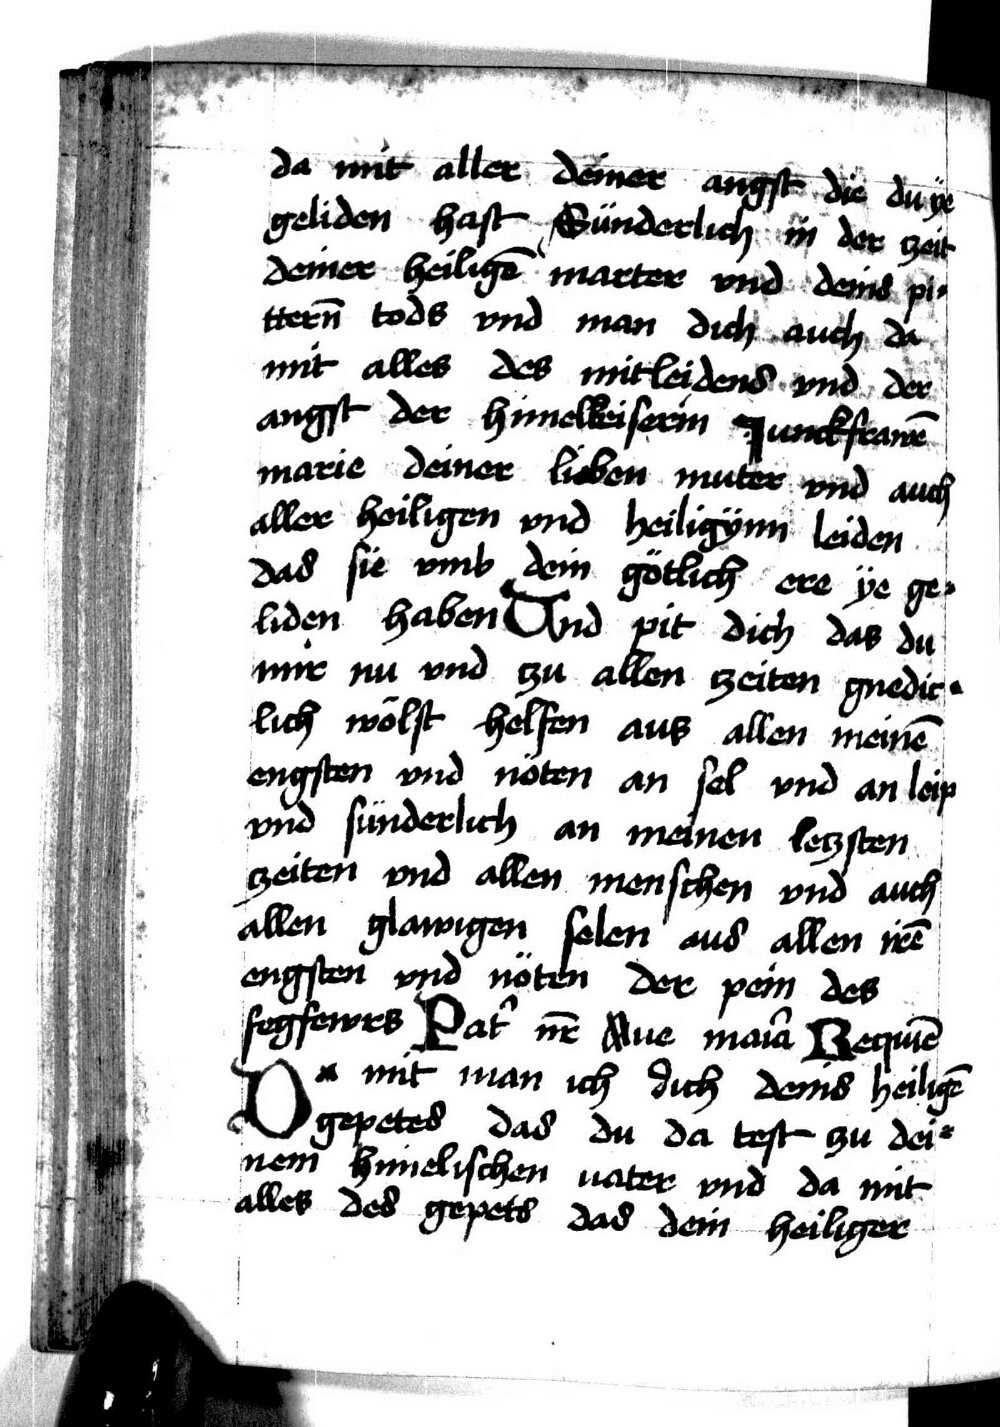 da mit aller deiner angst die du ÿe
geliden hast Sünderlich in der zeit
deiner heiligē marter vnd deins pi-
ttern̄ tods vnd man dich auch da
mit alles des mitleidens vnd der
angst der himelkeiserin Junckfrawē
marie deiner lieben muter vnd auch
aller heiligen vnd heiligÿnn leiden
das sie vmb dein götlich ere ÿe ge-
liden haben Vnd pit dich das du
mir nu vnd zu allen zeiten gnedic-
lich wölst helfen aus allen meinē
engsten vnd nöten an sel vnd an leip
vnd sünderlich an meinen letzsten
zeiten vnd allen menschen vnd auch
allen glawigen selen aus allen irē
engsten vnd nöten der pein des
fegfewrs Pat' nr̄ Aue maīa Requiē
Da mit man ich dich deins heiligē
gepetes das du da test zu dei-
nem himelischen uater vnd da mit
alles des gepets das dein heiliger